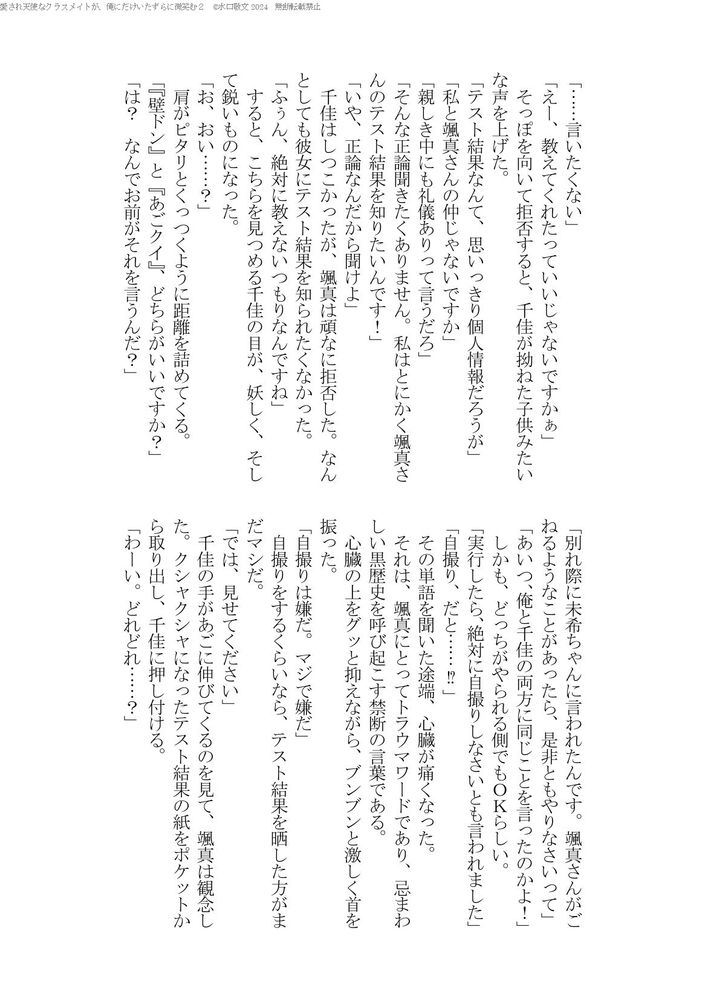 愛され天使なクラスメイトが、俺にだけいたずらに微笑む２　©水口敬文 2024　無断転載禁止
「……言いたくない」
「えー、教えてくれたっていいじゃないですかぁ」
　そっぽを向いて拒否すると、千佳が拗ねた子供みたい
な声を上げた。
「テスト結果なんて、思いっきり個人情報だろうが」
「私と颯真さんの仲じゃないですか」
「親しき中にも礼儀ありって言うだろ」
「そんな正論聞きたくありません。私はとにかく颯真さ
んのテスト結果を知りたいんです！」
「いや、正論なんだから聞けよ」
　千佳はしつこかったが、颯真は頑なに拒否した。なん
としても彼女にテスト結果を知られたくなかった。
「ふぅん、絶対に教えないつもりなんですね」
　すると、こちらを見つめる千佳の目が、妖しく、そし
て鋭いものになった。
「お、おい……？」
　肩がピタリとくっつくように距離を詰めてくる。
「『壁ドン』と『あごクイ』、どちらがいいですか？」
「は？　なんでお前がそれを言うんだ？」
「別れ際に未希ちゃんに言われたんです。颯真さんがご
ねるようなことがあったら、是非ともやりなさいって」
「あいつ、俺と千佳の両方に同じことを言ったのかよ！」
　しかも、どっちがやられる側でもＯＫらしい。
「実行したら、絶対に自撮りしなさいとも言われました」
「自撮り、だと……⁉」
　その単語を聞いた途端、心臓が痛くなった。
　それは、颯真にとってトラウマワードであり、忌まわ
しい黒歴史を呼び起こす禁断の言葉である。
　心臓の上をグッと抑えながら、ブンブンと激しく首を
振った。
「自撮りは嫌だ。マジで嫌だ」
　自撮りをするくらいなら、テスト結果を晒した方がま
だマシだ。
「では、見せてください」
　千佳の手があごに伸びてくるのを見て、颯真は観念し
た。クシャクシャになったテスト結果の紙をポケットか
ら取り出し、千佳に押し付ける。
「わーい。どれどれ……？」